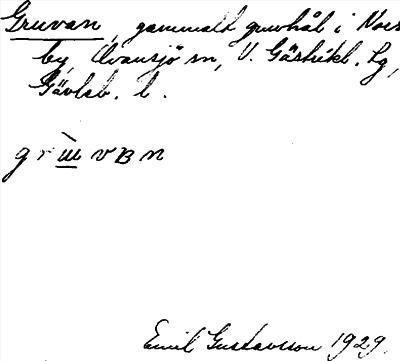 Gruvan, gammalt gruvhål i Nors
by, Ovansjö sn, V. Gästrikl. hg,
Gävleb. l.
Emil Gustavsson 1929.